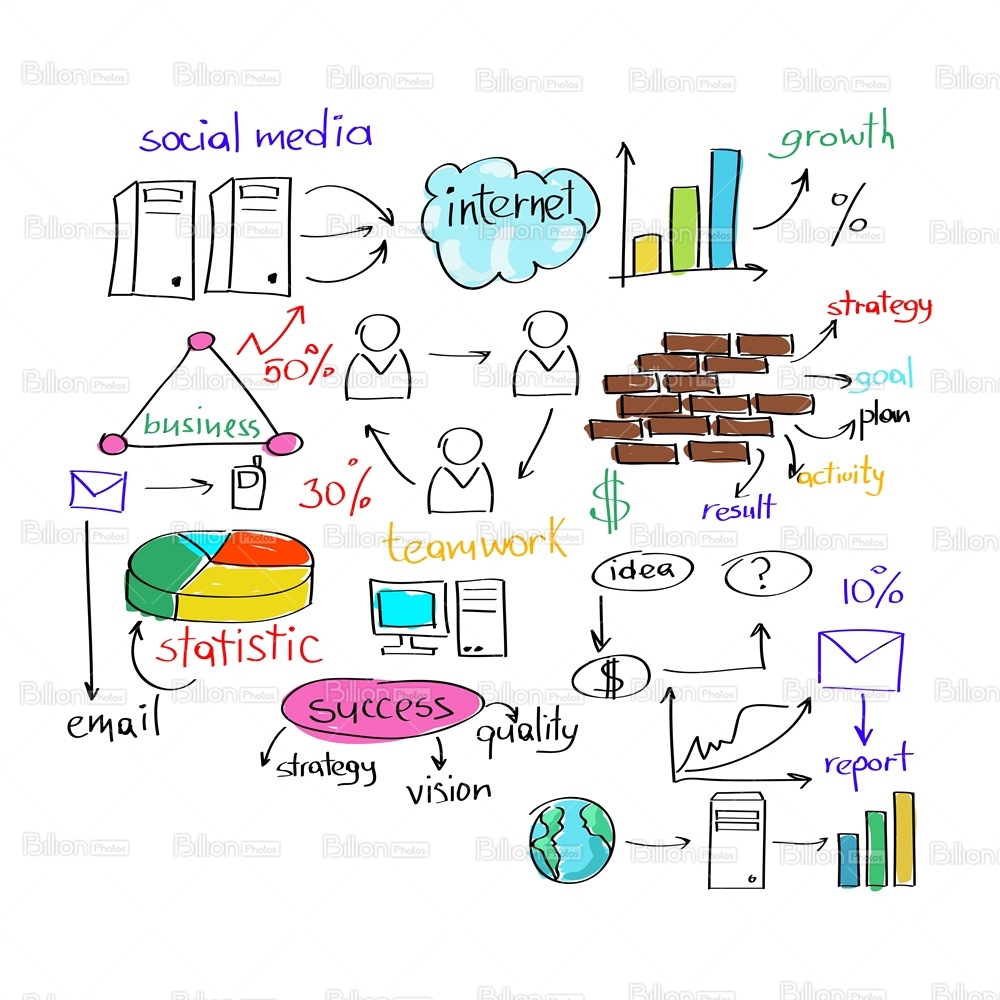 Billion Photos
social media
growth
internet
%
strategy
50%
goal
business
plan
30%
activity
$
result
teamwork
idea
?
10%
statistic
$
success
email
quality
report
strategy
vision